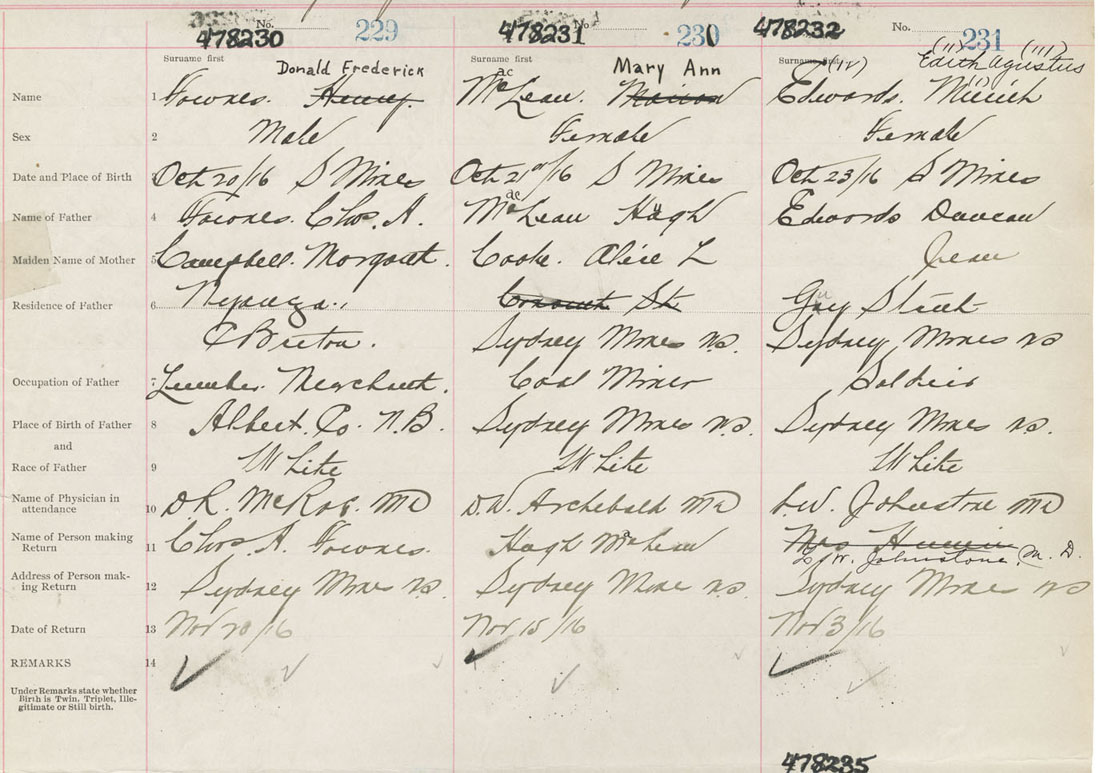 No. 229 No. 230 No. 231
478230 478231 478232
Surname first Surname first Surname first
Donald Frederick Mary Ann (ii) Edith (iii) Agustus
Name 1 Fownes. Henry McLean. Marion (iv) Edwards. (i)
Sex 2 Male Female Female
Date and Place of Birth 3 Oct 20/16 S Mines Oct 21st/16 S Mines Oct 23/16 S Mines
Name of Father 4 Fownes. Chas. A. McLean Hugh Edwards Duncan
Maiden Name of Mother 5 Campbell. Margaret. Cooke. Alice L Jean
Residence of Father 6 St Guy Street
C Breton. Sydney Mines N.S. Sydney Mines NS
Occupation of Father 7 Lumber Merchant. Coal Miner Soldier
Place of Birth of Father 8 Albert. Co. N.B. Sydney Mines N.S. Sydney Mines N.S.
and
Race of Father 9 White White White
Name of Physician in
attendance 10 D.R. McRae. MD D.W. Archibald MD L.W. Johnstone MD
Name of Person making
Return 11 Chas. A. Fownes. Hugh McLean Mrs
L. W. Johnstone. M. D.
Address of Person mak-
ing Return 12 Sydney Mines N.S. Sydney Mines N.S. Sydney Mines NS
Date of Return 13 Nov 20/16 Nov 15/16 Nov 3/16
REMARKS 14
Under Remarks state whether
Birth is Twin, Triplet, Ille-
gitimate or Still birth.
478235